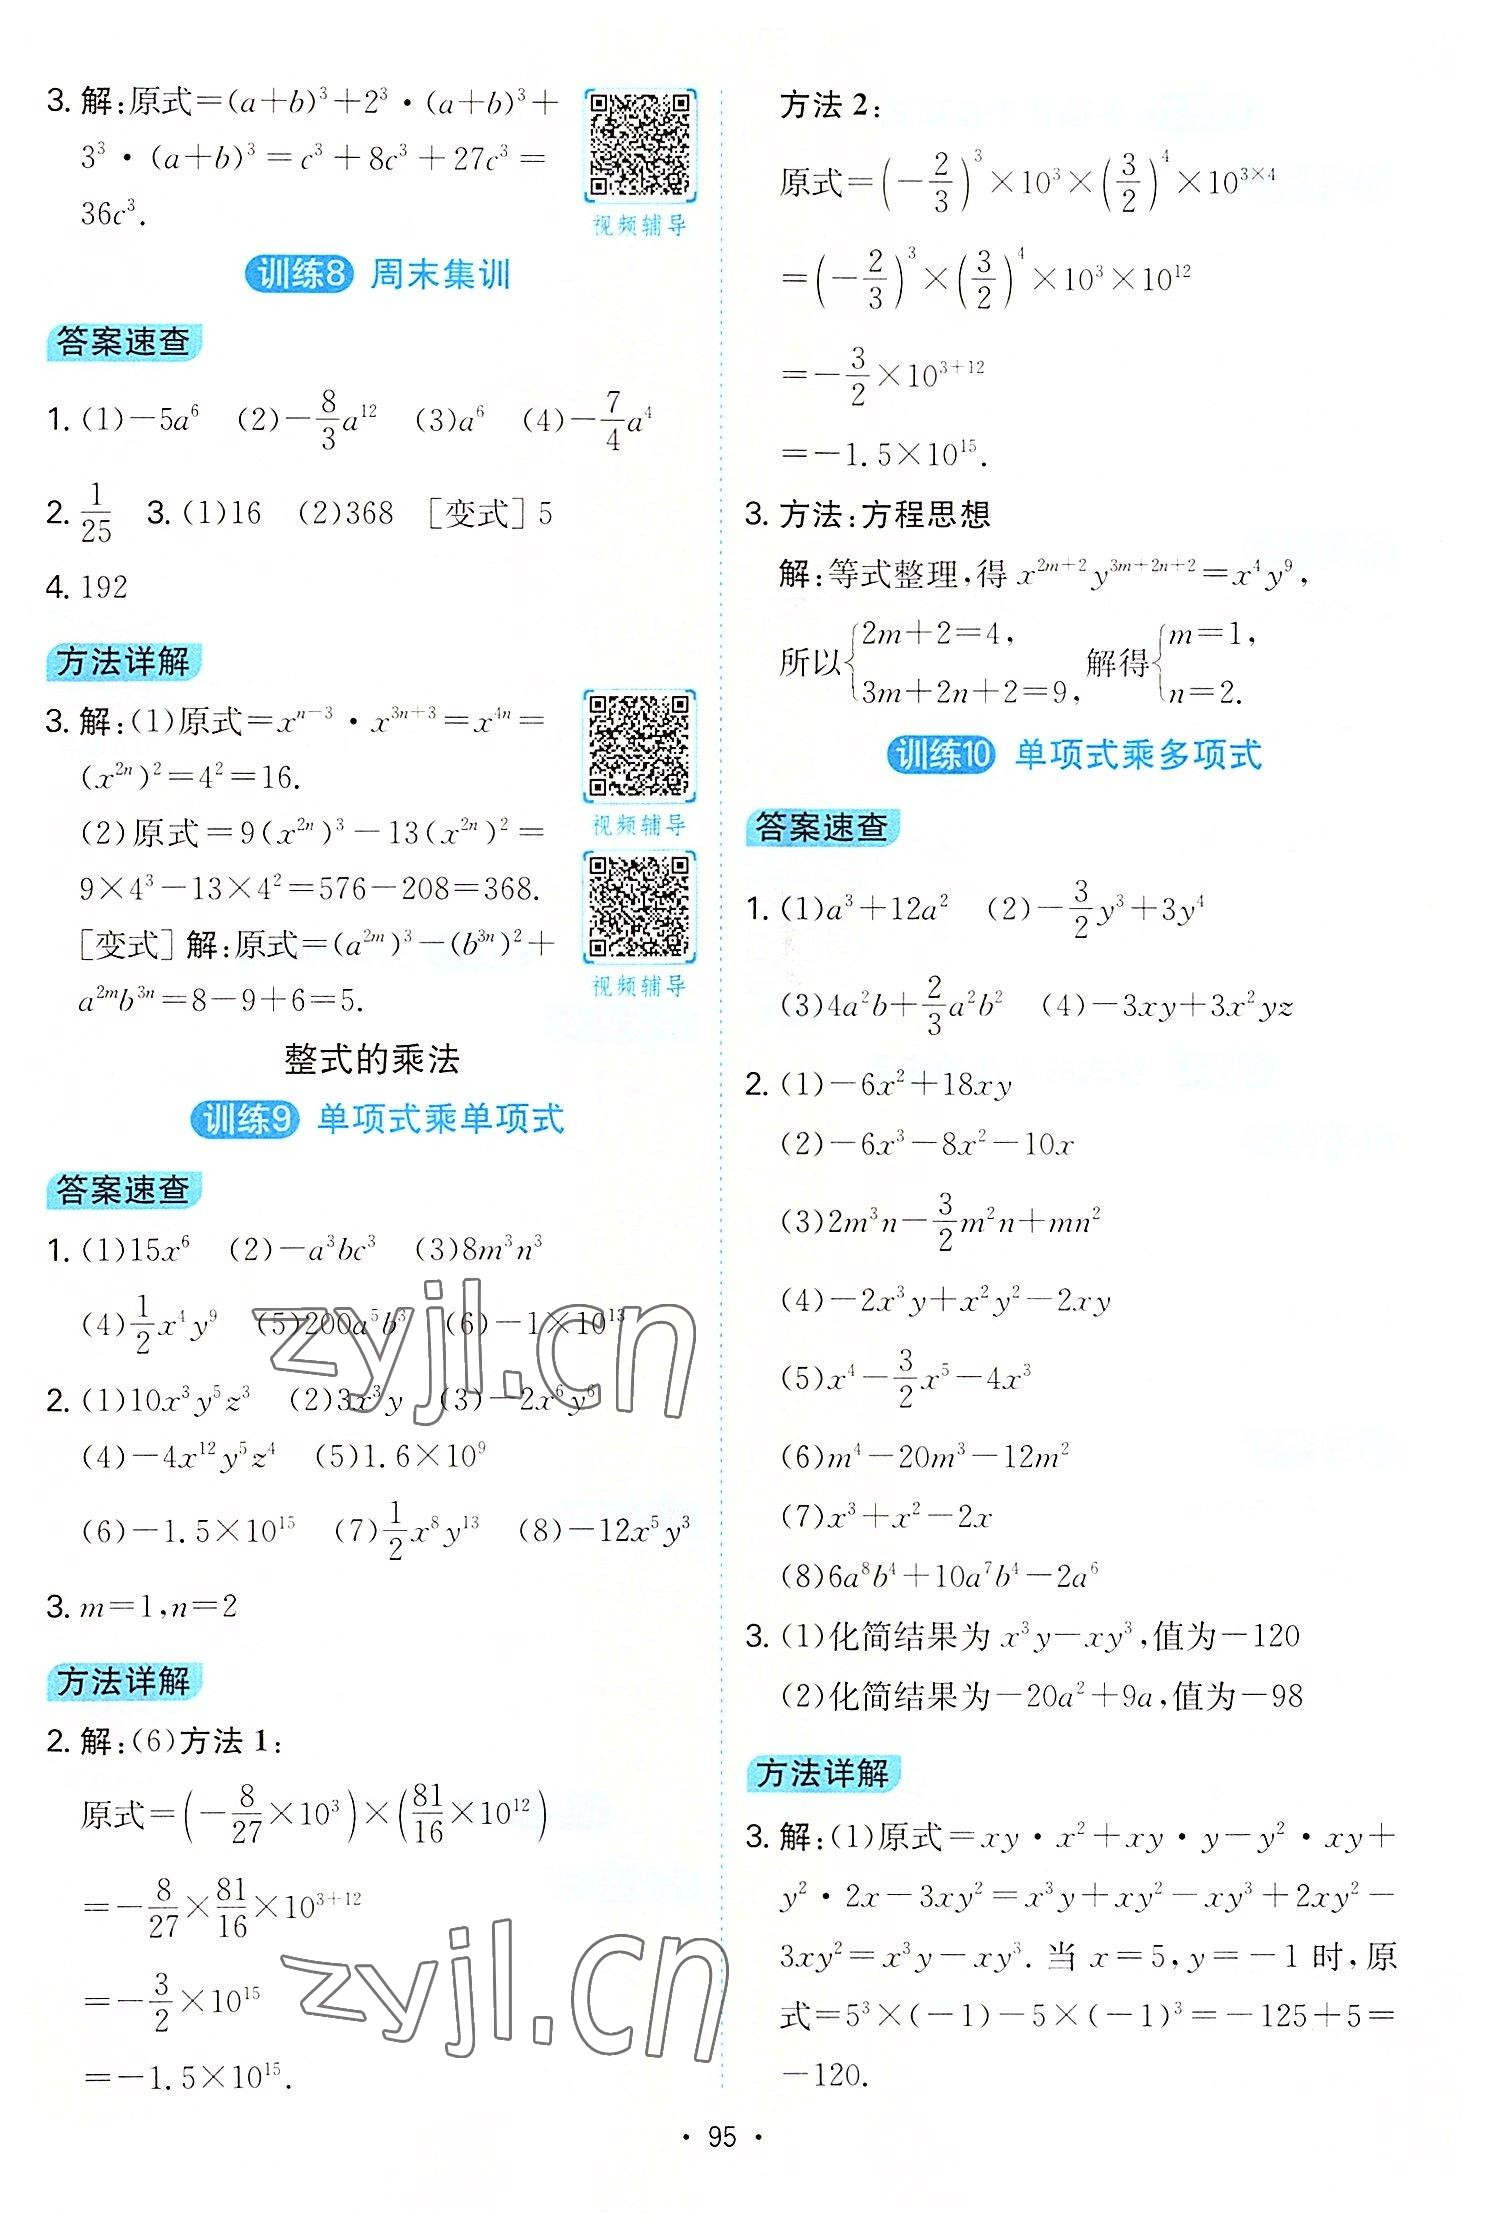 3. 解:原式=(a+b)³+2³·(a+b)³+
3³·(a+b)³=c³+8c³+27c³=
36c³.
视频辅导
训练8 周末集训
答案速查
1. (1)-5a⁶ (2)-8/3a¹² (3)a⁶ (4)-7/4a⁴
2. 1/25 3. (1)16 (2)368 [变式]5
4. 192
方法详解
3. 解:(1)原式=xⁿ⁻³·x³ⁿ⁺³=x⁴ⁿ=
(x²ⁿ)²=4²=16.
视频辅导
(2)原式=9(x²ⁿ)³-13(x²ⁿ)²=
9×4³-13×4²=576-208=368.
[变式]解:原式=(a²ᵐ)³-(b³ⁿ)²+
a²ᵐb³ⁿ=8-9+6=5.
视频辅导
整式的乘法
训练9 单项式乘单项式
答案速查
1. (1)15x⁶ (2)-a³bc³ (3)8m³n³
(4)1/2x⁴y⁹ (5)200a⁵b³ (6)-1×10¹³
2. (1)10x³y⁵z³ (2)3x³y (3)-2x⁶y⁶
(4)-4x¹²y⁵z⁴ (5)1.6×10⁹
(6)-1.5×10¹⁵ (7)1/2x⁸y¹³ (8)-12x⁵y³
3. m=1,n=2
方法详解
2. 解:(6)方法1:
原式=(-8/27×10³)×(81/16×10¹²)
=-8/27×81/16×10³⁺¹²
=-3/2×10¹⁵
=-1.5×10¹⁵.
方法2:
原式=(-2/3)³×10³×(3/2)⁴×10³ˣ⁴
=(-2/3)³×(3/2)⁴×10³×10¹²
=-3/2×10³⁺¹²
=-1.5×10¹⁵.
3. 方法:方程思想
解:等式整理,得 x²ᵐ⁺²y³ᵐ⁺²ⁿ⁺²=x⁴y⁹,
所以{2m+2=4, 3m+2n+2=9, 解得{m=1, n=2.
训练10 单项式乘多项式
答案速查
1. (1)a³+12a² (2)-3/2y³+3y⁴
(3)4a²b+2/3a²b² (4)-3xy+3x²yz
2. (1)-6x²+18xy
(2)-6x³-8x²-10x
(3)2m³n-3/2m²n+mn²
(4)-2x³y+x²y²-2xy
(5)x⁴-3/2x⁵-4x³
(6)m⁴-20m³-12m²
(7)x³+x²-2x
(8)6a⁸b⁴+10a⁷b⁴-2a⁶
3. (1)化简结果为 x³y-xy³,值为-120
(2)化简结果为-20a²+9a,值为-98
方法详解
3. 解:(1)原式=xy·x²+xy·y-y²·xy+
y²·2x-3xy²=x³y+xy²-xy³+2xy²-
3xy²=x³y-xy³.当 x=5,y=-1时,原
式=5³×(-1)-5×(-1)³=-125+5=
-120.
zyjl.cn
zyjl.cn
·95·